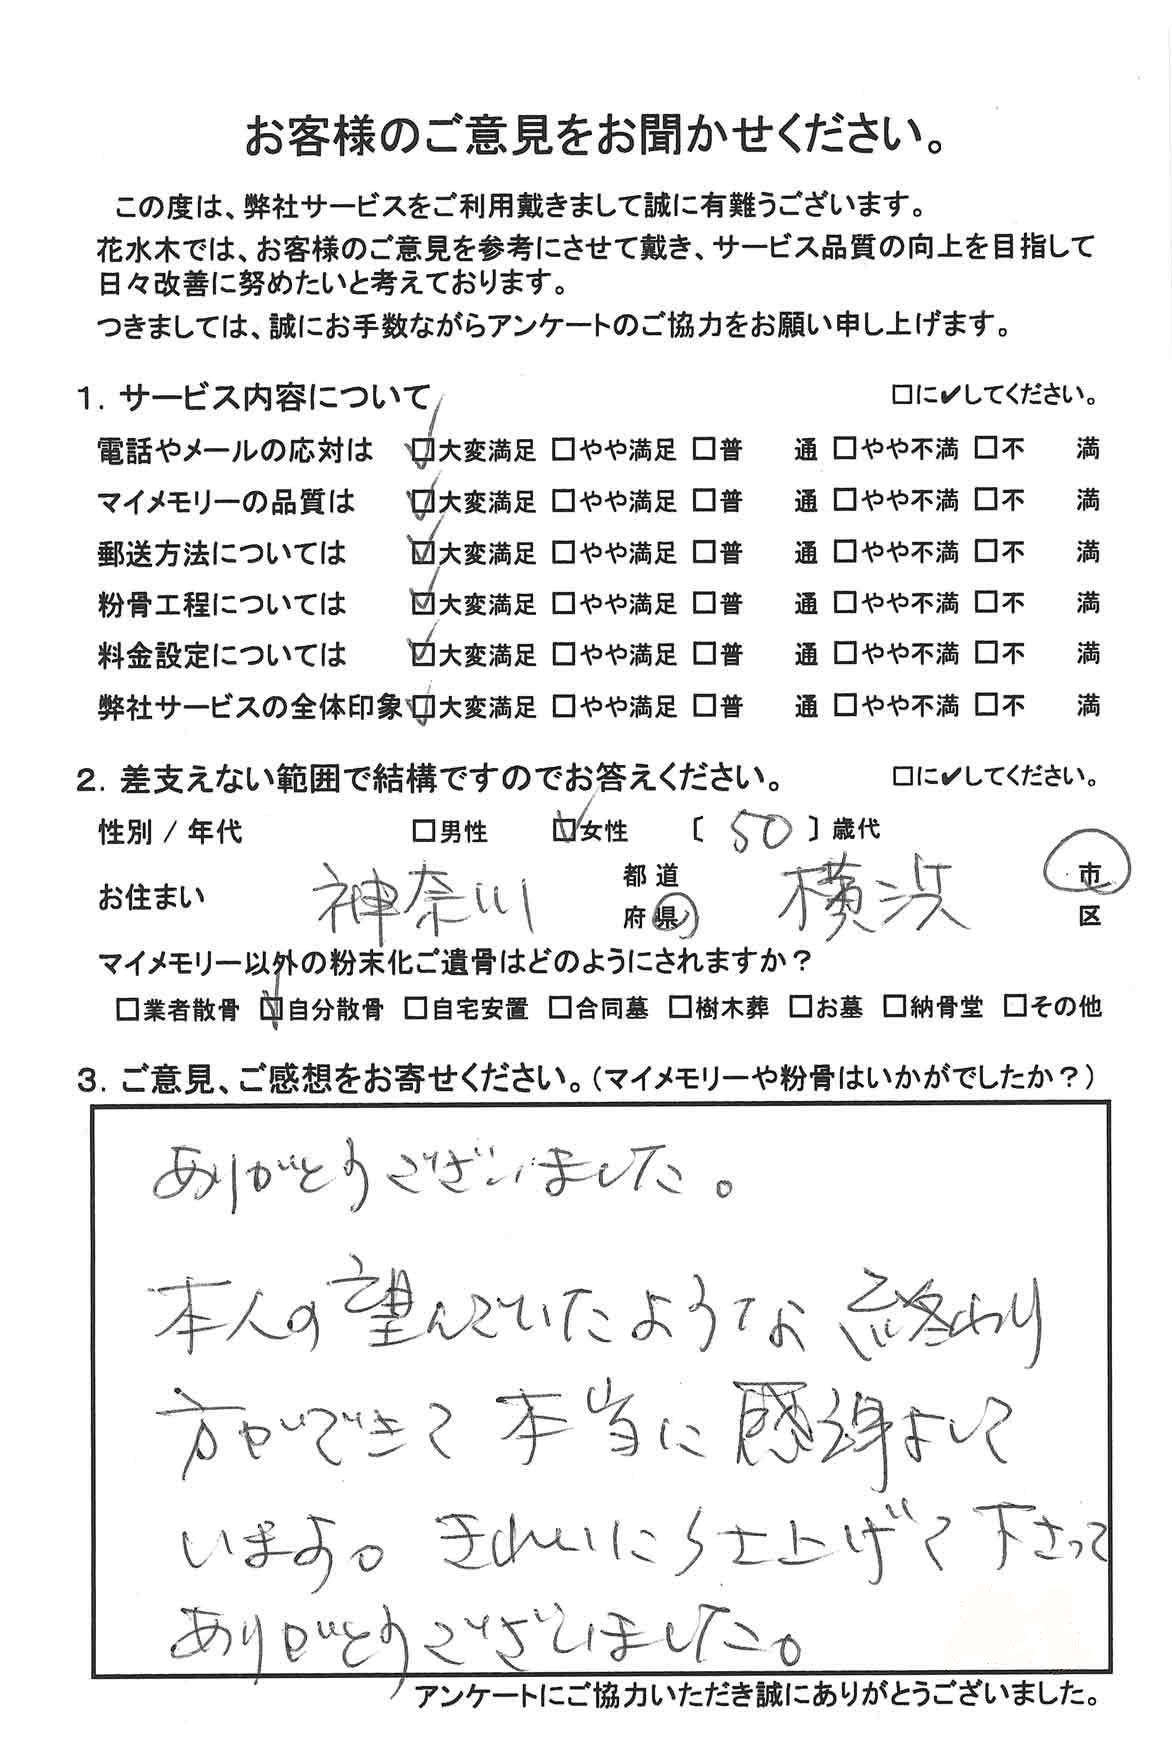 お客様のご意見をお聞かせください。
この度は、弊社サービスをご利用戴きまして誠に有難うございます。
花水木では、お客様のご意見を参考にさせて戴き、サービス品質の向上を目指して
日々改善に努めたいと考えております。
つきましては、誠にお手数ながらアンケートのご協力をお願い申し上げます。
1. サービス内容について □に✔してください。
電話やメールの応対は ☑大変満足 □やや満足 □普 通 □やや不満 □不 満
マイメモリーの品質は ☑大変満足 □やや満足 □普 通 □やや不満 □不 満
郵送方法については ☑大変満足 □やや満足 □普 通 □やや不満 □不 満
粉骨工程については ☑大変満足 □やや満足 □普 通 □やや不満 □不 満
料金設定については ☑大変満足 □やや満足 □普 通 □やや不満 □不 満
弊社サービスの全体印象 ☑大変満足 □やや満足 □普 通 □やや不満 □不 満
2. 差支えない範囲で結構ですのでお答えください。 □に✔してください。
性別 / 年代 □男性 ☑女性 〔 50 〕歳代
お住まい 神奈川 都道府県 横浜 市区
マイメモリー以外の粉末化ご遺骨はどのようにされますか？
□業者散骨 ☑自分散骨 □自宅安置 □合同墓 □樹木葬 □お墓 □納骨堂 □その他
3. ご意見、ご感想をお寄せください。（マイメモリーや粉骨はいかがでしたか？）
ありがとうございました。
本人の望んでいたような終わり
方ができて本当に感謝して
います。きれいに仕上げて下さって
ありがとうございました。
アンケートにご協力いただき誠にありがとうございました。